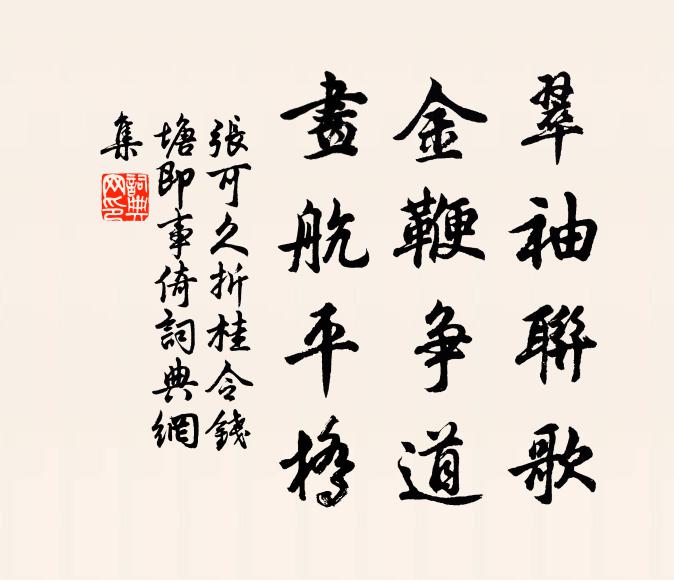 翠袖聯歌
金鞭争道
畫航平橋
張可久折桂令錢
塘即事倚詞典網
集
詞典
网印